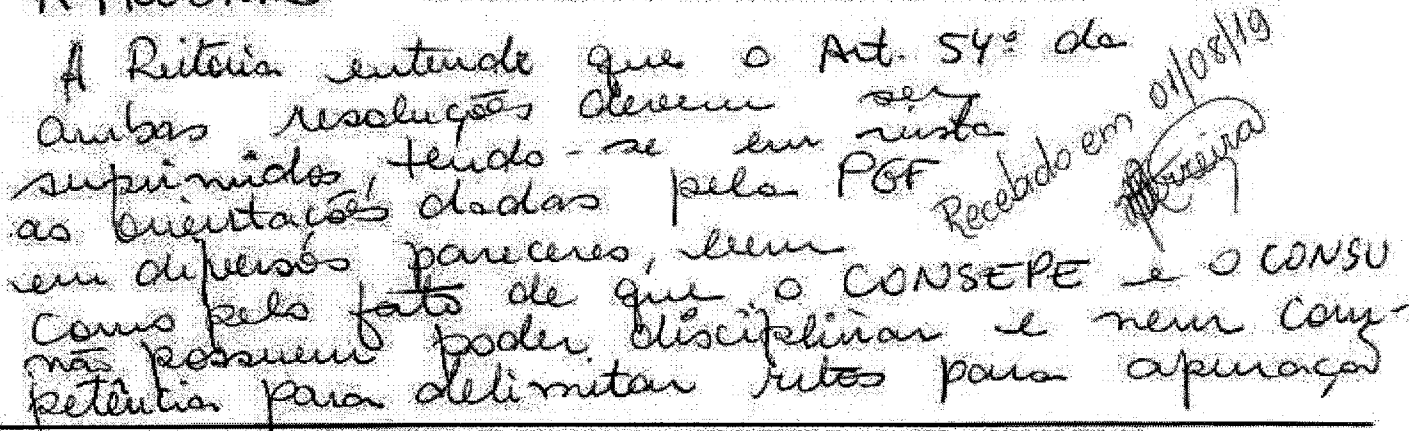 A Reitoria entende que o Art. 54º da
ambas resoluções devem ser
suprimidos, tendo-se em vista
as orientações dadas pela PGF
em diversos pareceres, bem
como pelo fato de que o CONSEPE e o CONSU
não possuem poder disciplinar e nem com-
petência para delimitar ritos para apuração
Recebido em 01/08/19